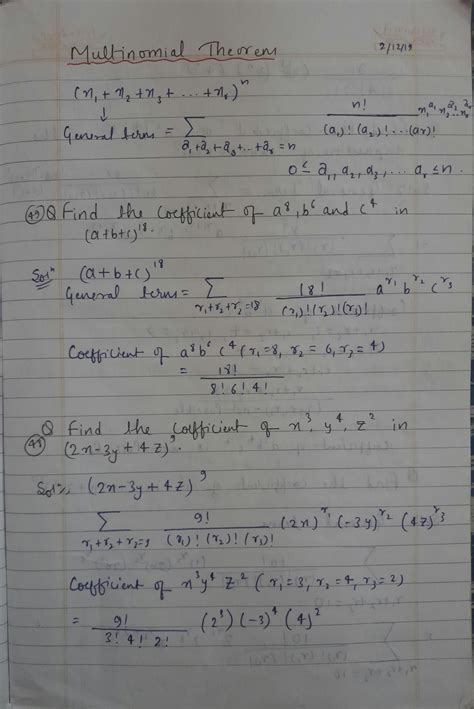 Multinomial Theorem
2/12/19
(x₁ + x₂ + x₃ + ... + xᵣ)ⁿ
↓
General term = ∑ n! / (a₁)! (a₂)! ... (ar)! x₁^a₁ x₂^a₂ ... xᵣ^aᵣ
a₁+a₂+a₃+...+aᵣ = n
0 ≤ a₁, a₂, a₃, ... aᵣ ≤ n.
Q Find the coefficient of a⁸, b⁶ and c⁴ in
(a+b+c)¹⁸.
Solⁿ (a+b+c)¹⁸
General term = ∑ 18! / (r₁)! (r₂)! (r₃)! a^r₁ b^r₂ c^r₃
r₁+r₂+r₂=18
Coefficient of a⁸b⁶c⁴ (r₁=8, r₂=6, r₃=4)
= 18! / 8! 6! 4!
Q Find the coefficient of x³, y⁴, z² in
(2x-3y+4z)⁹.
Solⁿ (2x-3y+4z)⁹
∑ 9! / (r₁)! (r₂)! (r₃)! (2x)^r₁ (-3y)^r₂ (4z)^r₃
r₁+r₂+r₃=9
Coefficient of x³y⁴z² (r₁=3, r₂=4, r₃=2)
= 9! / 3! 4! 2! (2³) (-3)⁴ (4)²